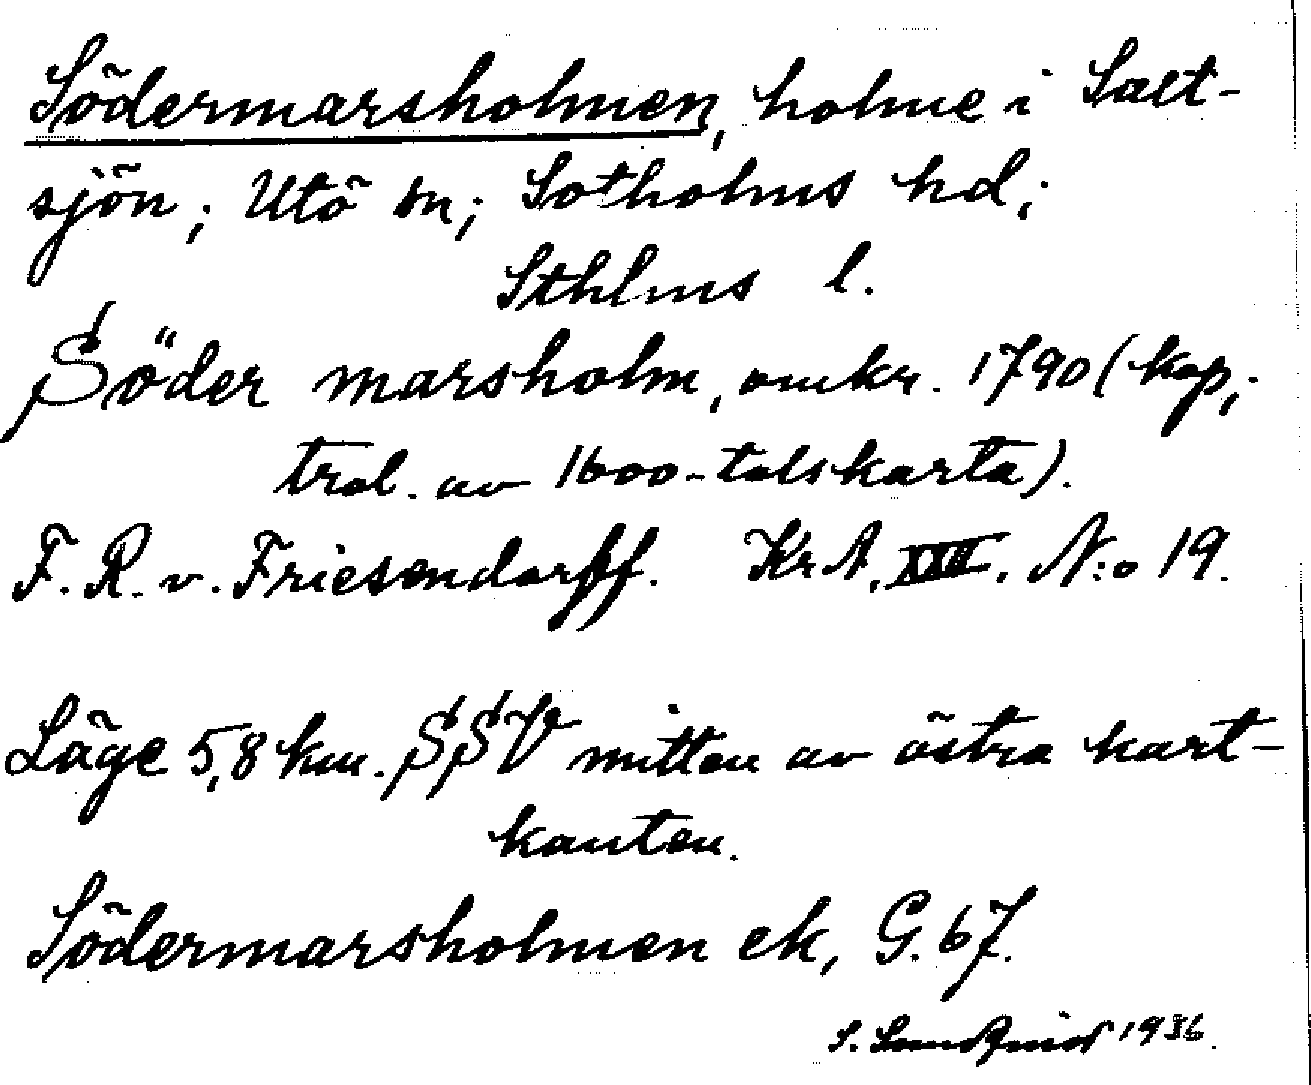 Södermarsholmen, holme i Salt-
sjön; Utö sn; Sotholms hd;
Sthlms l.
Söder marsholm, omkr. 1790 (kop;
trol. av 1600-talskarta).
F. R. v. Friesendorff. KrA, XIII. N:o 19.
Läge 5,8 km. SSV mitten av östra kart-
kanten.
Södermarsholmen ek, G. 67.
S. Sundqvist 1936.